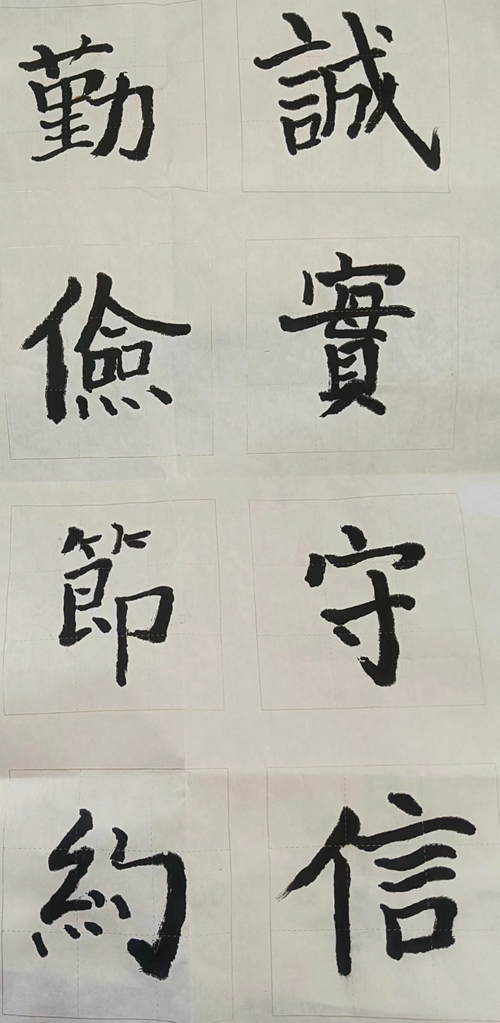 誠實守信
勤儉節約